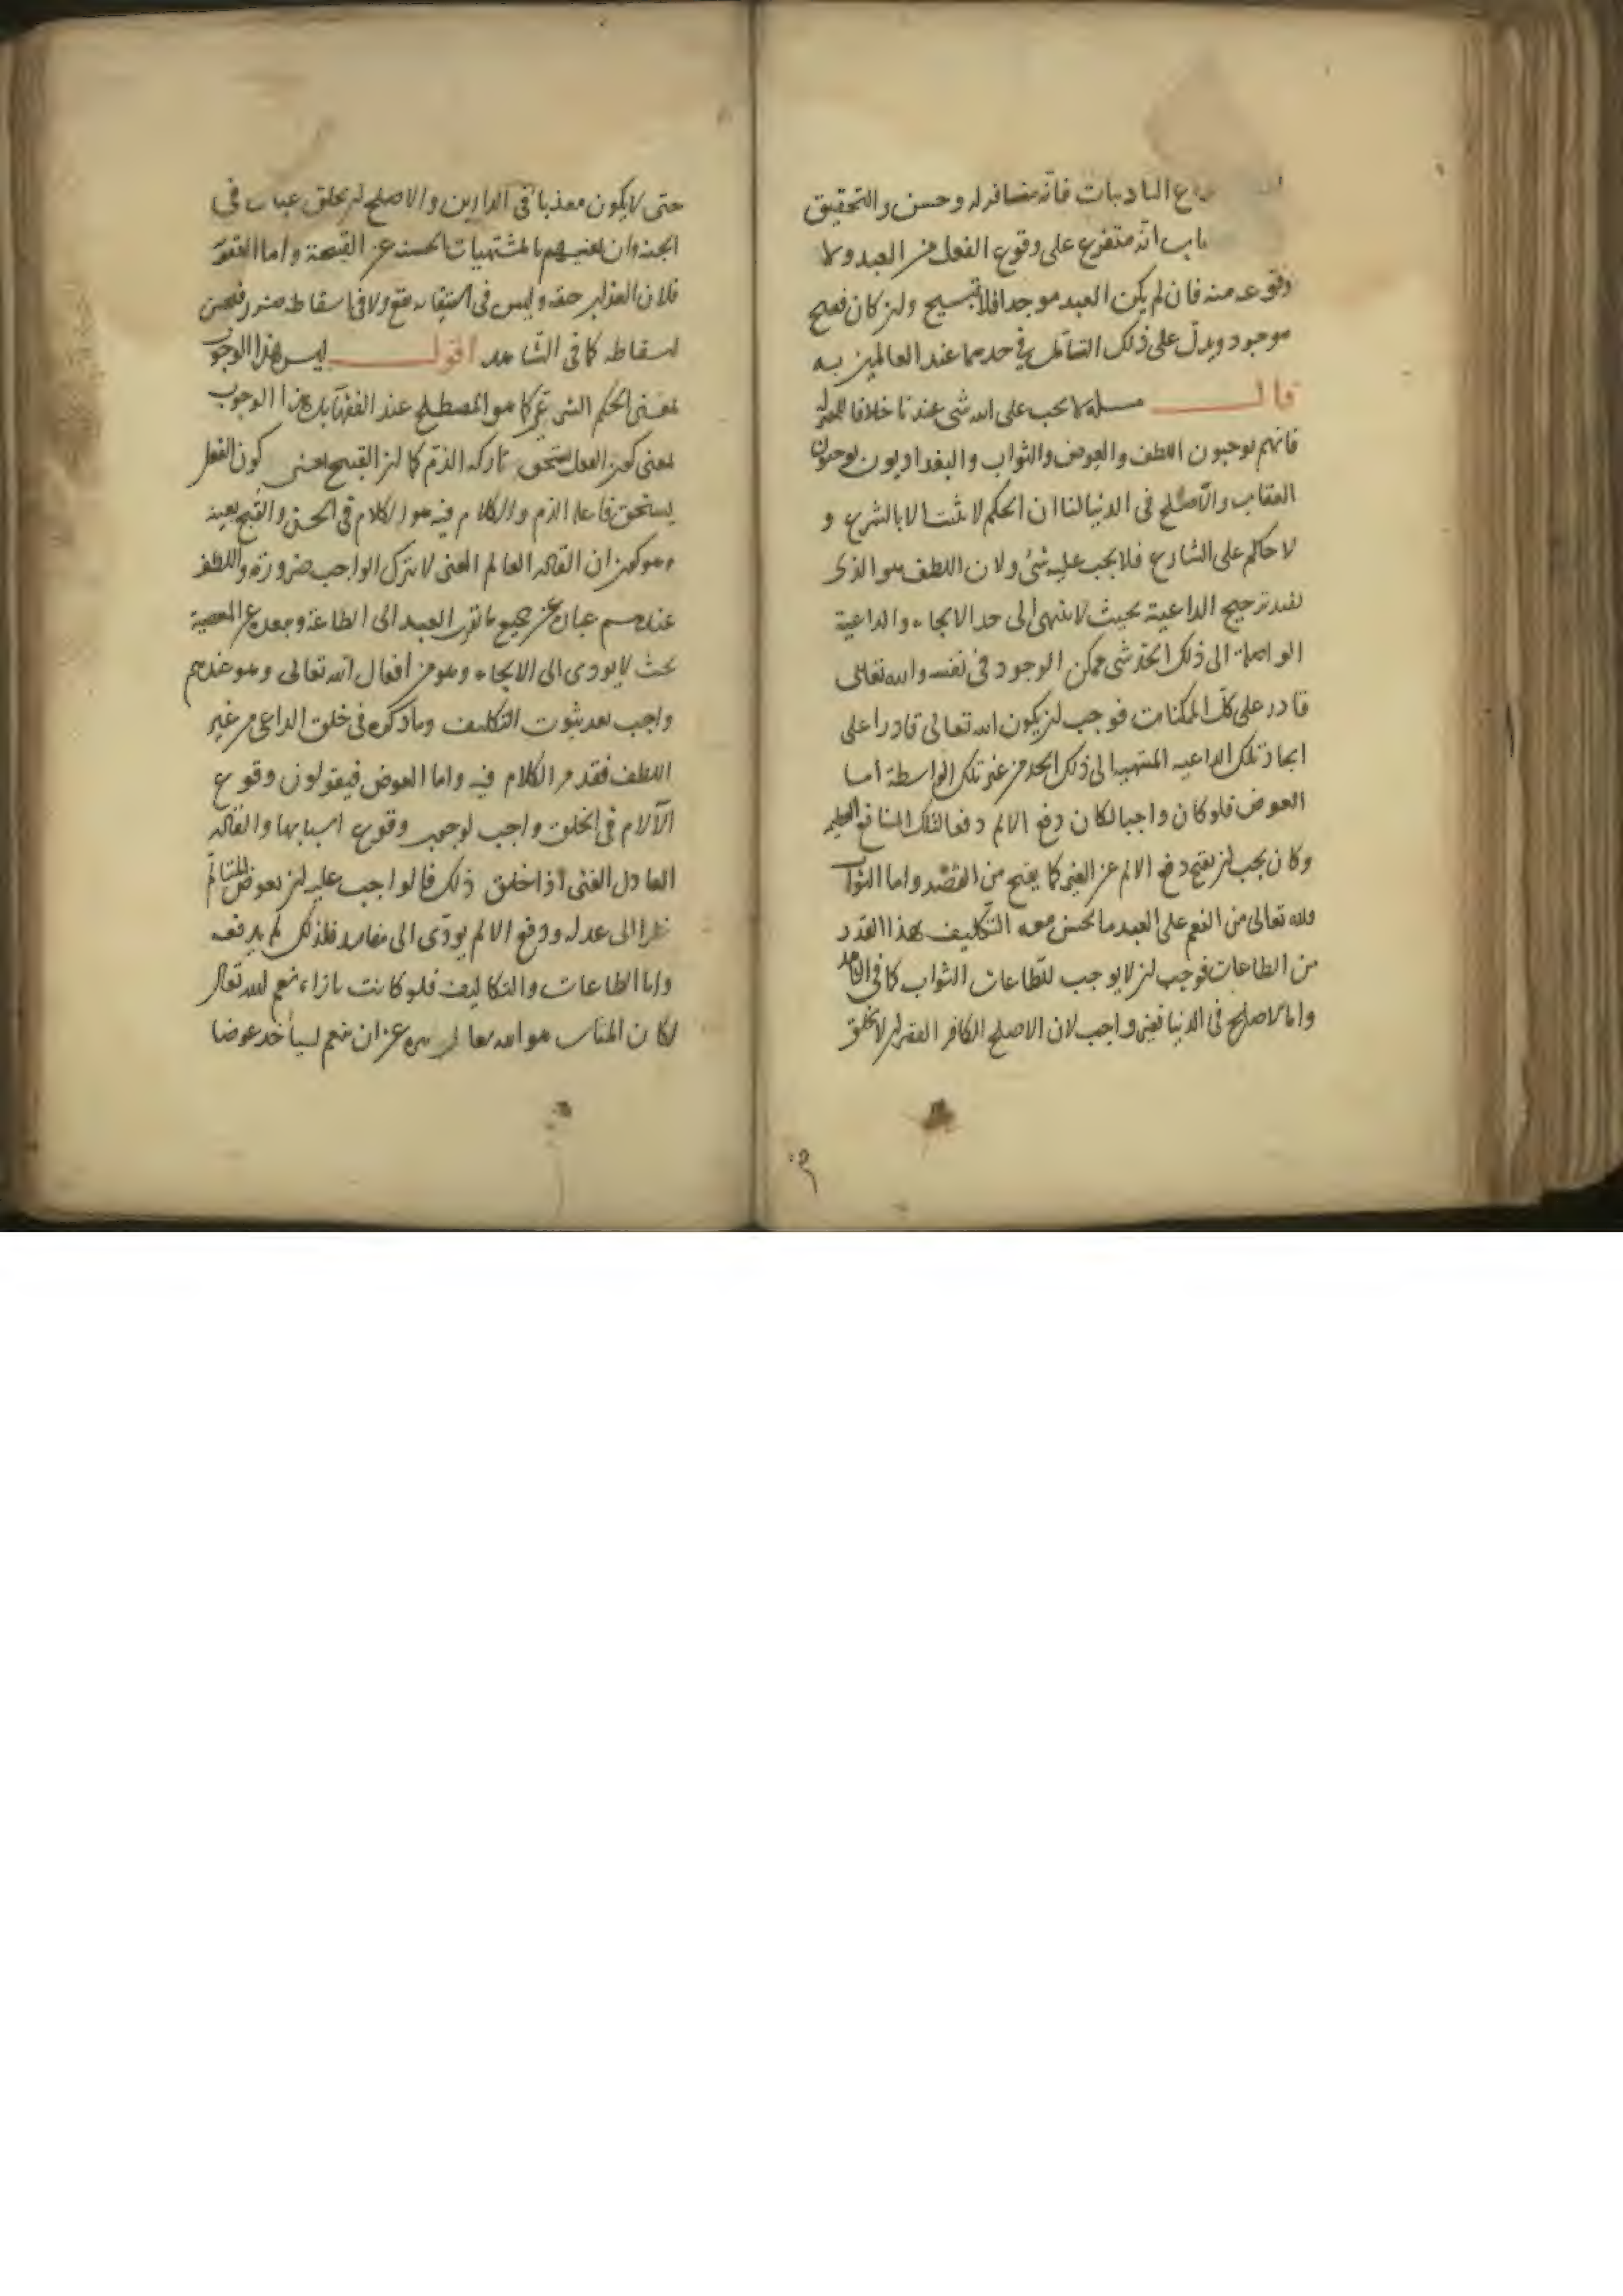 واع التأديبات فانه منافر له وحسن والتحقيق
باب انه متفرع على وقوع الفعل من العبد ولا
وقوعه منه فان لم يكن العبد موجدا فلا قبيح ولن كان فقبح
موجود ويدل على ذلك التأمل في حدهما عند العالمين به
قال مسئلة لا يجب على الله شى عندنا خلافا للمعتزلة
فانهم يوجبون اللطف والعوض والثواب والبغداديون يوجبون
العقاب والأصلح فى الدنيا لنا ان الحكم لا يثبت الا بالشرع و
لا حاكم على الشارع فلا يجب عليه شئ ولان اللطف هو الذى
يفيد ترجيح الداعية بحيث لا ينتهى الى حد الالجاء والداعية
الواصلة الى ذلك الحد شى ممكن الوجود فى نفسه والله تعالى
قادر على كل الممكنات فوجب لن يكون الله تعالى قادرا على
ايجاد تلك الداعيه المنتهيه الى ذلك الحد من غير تلك الواسطة أما
العوض فلو كان واجبا لكان دفع الالم دفعا لتلك المنافع العظيمه
وكان يجب لن يقبح دفع الالم عن الغير كما يقبح من الفصد واما الثواب
فلله تعالى من النعم على العبد ما يحسن معه التكليف بهذا القدر
من الطاعات فوجب لن لا يوجب للطاعات الثواب كما فى الشاهد
واما الاصلح فى الدنيا فغير واجب لان الاصلح للكافر الفقير لن لا يخلق
حتى لا يكون معذبا فى الدارين والاصلح لن يخلق عباده فى
الجنة وان يغنيهم بالمشتهيات الحسنة عن القبيحة واما العقاب
فلان العذاب حقه وليس فى استيفائه نفع ولا فى اسقاطه ضرر فحسن
اسقاطه كما فى الشاهد اقول ليس هذا الوجوب
بمعنى الحكم الشرعى كما هو المصطلح عند الفقهآ بل هذا الوجوب
بمعنى كون الفعل يستحق تاركه الذم كما لن القبيح بمعنى كون الفعل
يستحق فاعله الذم والكلام فيه هو الكلام فى الحسن والقبح بعينه
ان القادر العالم الغنى لا يترك الواجب ضرورة واللطف
عندهم عبارة عن جميع ما يقرب العبد الى الطاعة ويبعده عن المعصية
بحيث لا يودى الى الالجاء وهو من أفعال الله تعالى وهو عندهم
واجب بعد ثبوت التكليف وما ذكره فى خلق الداعى من غير
اللطف فقد مر الكلام فيه واما العوض فيقولون وقوع
الآلام فى الخلق واجب لوجوب وقوع اسبابها والقادر
العادل الغنى اذا خلق ذلك قالوا جب عليه لن يعوض المتألم
نظرا الى عدله ودفع الالم يودى الى مفاسد فلذلك لم يدفعه
واما الطاعات والتكاليف فلو كانت بازاء نعم الله تعالى
لكان المناسب هو الله تعالى منزه عن ان ينعم ليأخذ عوضا